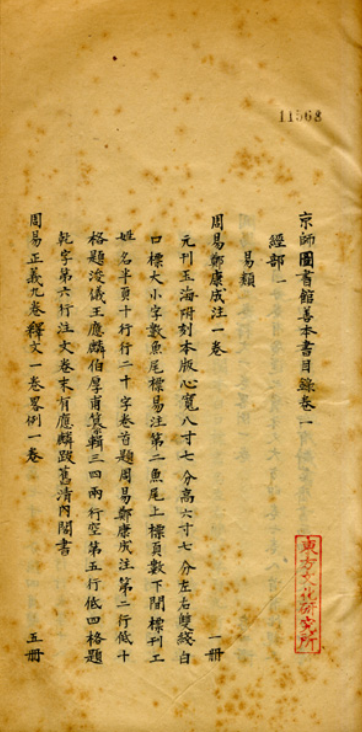 11568
京師圖書館善本書目錄卷一
經部一
易類
周易鄭康成注一卷 一冊
元刊玉海附刻本版心寬八寸七分高六寸七分左右雙綫白
口標大小字數魚尾標易注第二魚尾上標頁數下間標刊工
姓名半頁十行行二十字卷首題周易鄭康成注第二行低十
格題浚儀王應麟伯厚甫纂輯三四兩行空第五行低四格題
乾字第六行注文卷末有應麟跋舊清內閣書
周易正義九卷釋文一卷畧例一卷 五冊
東方文化研究所